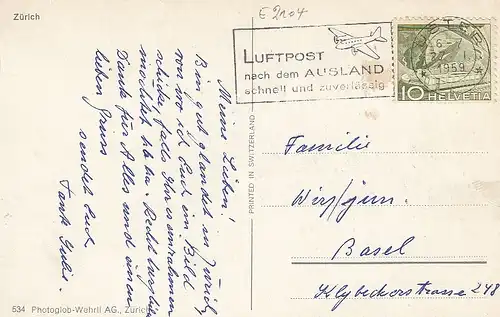 Zürich
E 2104
LUFTPOST
nach dem AUSLAND
schnell und zuverlässig
1959
10 HELVETIA
Meine Lieben!
Bin gut gelandet in Zürich,
von wo ich Euch ein Bild
schicke, falls Ihr es einrahmen
möchtet
Dank für Alles und einen
lieben Gruss
sendet Euch
PRINTED IN SWITZERLAND
Familie
jun.
Basel
Klybeckerstrasse 248
534 Photoglob-Wehrli AG., Zürich